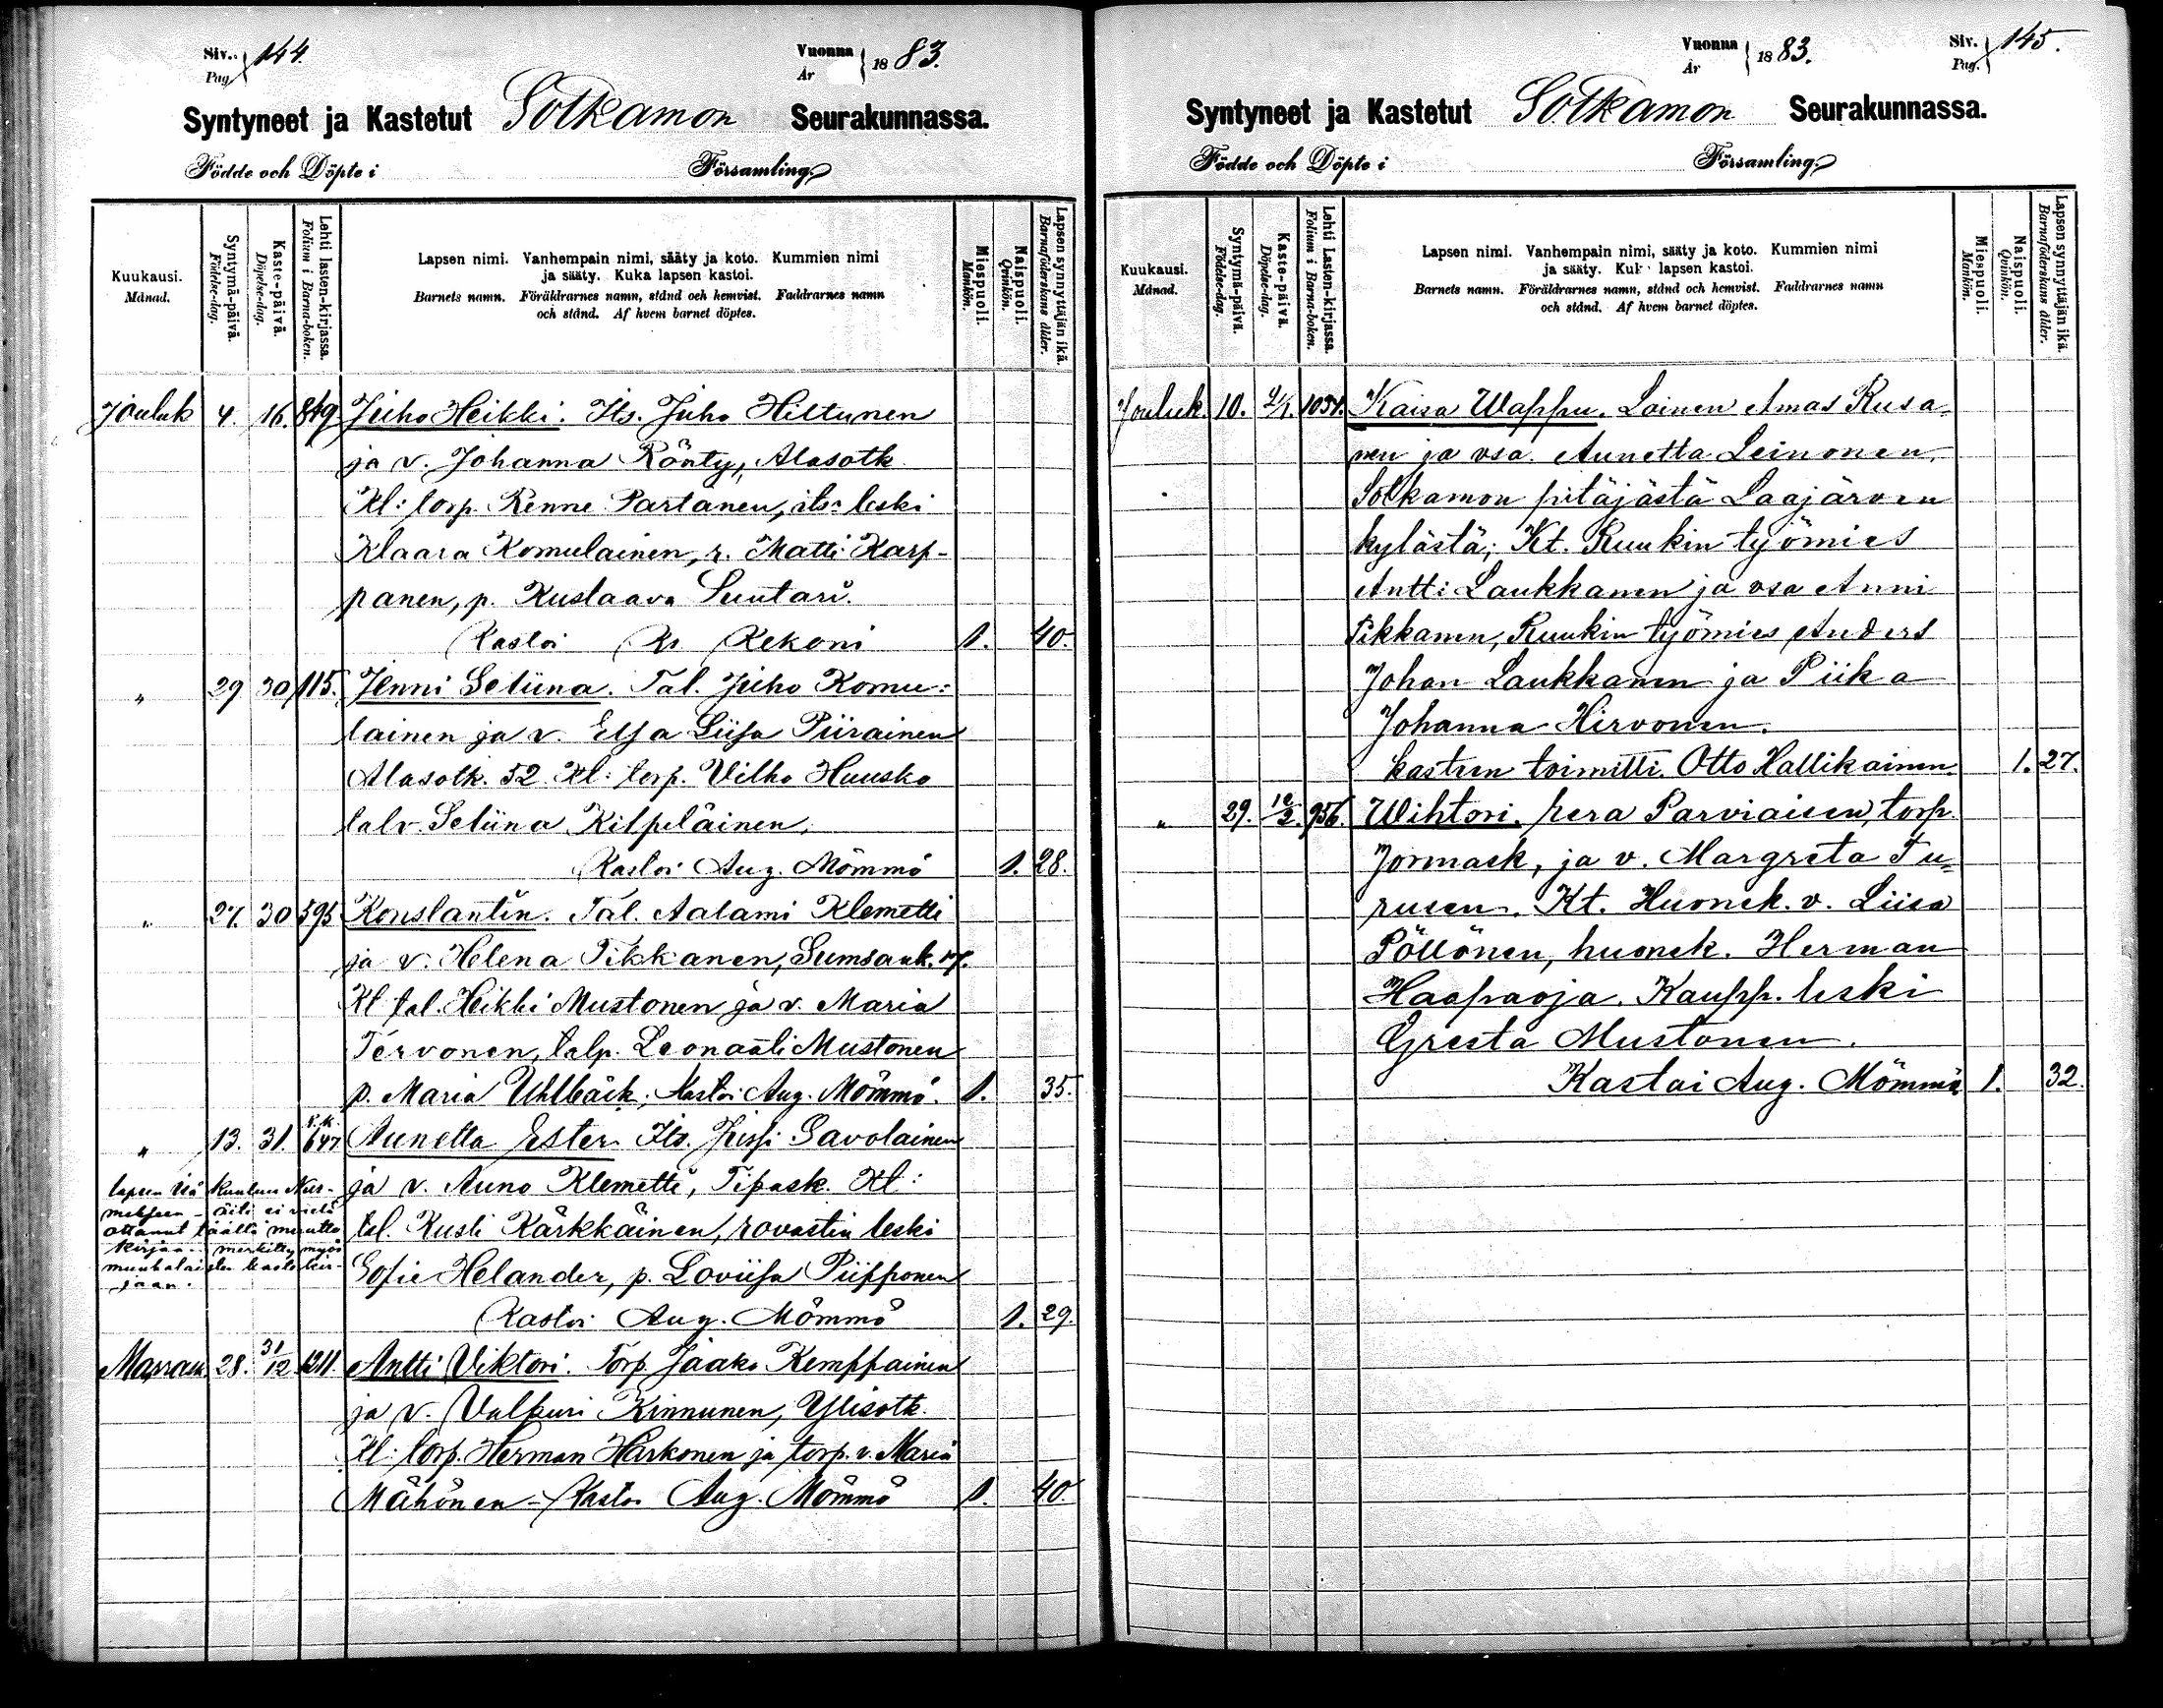 Siv. Pag. 144.
Vuonna År 1883.
Syntyneet ja Kastetut Sotkamon Seurakunnassa.
Födde och Döpte i Församling.
Kuukausi. Månad.
Syntymä-päivä. Födelse-dag.
Kaste-päivä. Döpelse-dag.
Lehti lasten-kirjassa. Folium i Barna-boken.
Lapsen nimi. Vanhempain nimi, sääty ja koto. Kummien nimi
ja sääty. Kuka lapsen kastoi.
Barnets namn. Föräldrarnes namn, stånd och hemvist. Faddrarnes namn
och stånd. Af hvem barnet döptes.
Miespuoli. Mankön.
Naispuoli. Qvinkön.
Lapsen synnyttäjän ikä. Barnaföderskans ålder.
Jouluk 4. 16. 849 Juho Heikki. Its. Juho Hiltunen
ja v. Johanna Ränty, Alasotk
Kt: torp. Renne Partanen, its: leski
Klaara Komulainen, r. Matti Karp-
panen, p. Kustaava Suutari.
Kastoi Rekoni 1. 40.
" 29 30 115. Jenni Seliina. Tal. Juho Komu:
lainen ja v. Elsa Liisa Piirainen
Alasotk. 52. Kt: torp. Vilho Huusko
talv. Seliina Kilpeläinen.
Kastoi Aug. Mömmö 1. 28.
" 27. 30 595 Konstantin. Tal. Aalami Klemetti
ja v. Helena Tikkanen, Sumsank. 17.
Kt tal. Heikki Mustonen ja v. Maria
Tervonen, talp. Leonaäli Mustonen
p. Maria Uhlbäck, Kastoi Aug. Mömmö. 1. 35.
" 13. 31. 647 Aunetta Ester. Its. Jussi Savolainen
lapsen isä kuuluu Nur- ja v. Auno Klemetti, Tipask. Kt:
meksen - äiti ei vielä
ottanut täältä muutto tal. Kusti Kärkkäinen, rovastin leski
kirjaa - merkitty myös
muukalaisten kaste kir- Sofie Helander, p. Loviisa Piipponen
jaan.
Kastoi Aug. Mömmö 1. 29.
Marrask. 28. 31/12 1211. Antti Viktori. Torp. Jaako Kemppainen
ja v. Valpuri Kinnunen, Ylisotk.
Kt: torp. Herman Härkonen ja torp. v. Maria
Mähönen - Kastoi Aug. Mömmö 1. 40.
Vuonna År 1883.
Siv. Pag. 145.
Syntyneet ja Kastetut Sotkamon Seurakunnassa.
Födde och Döpte i Församling.
Kuukausi. Månad.
Syntymä-päivä. Födelse-dag.
Kaste-päivä. Döpelse-dag.
Lehti Lasten-kirjassa. Folium i Barna-boken.
Lapsen nimi. Vanhempain nimi, sääty ja koto. Kummien nimi
ja sääty. Kuk lapsen kastoi.
Barnets namn. Föräldrarnes namn, stånd och hemvist. Faddrarnes namn
och stånd. Af hvem barnet döptes.
Miespuoli. Mankön.
Naispuoli. Qvinkön.
Lapsen synnyttäjän ikä. Barnaföderskans ålder.
Jouluk. 10. 2/1. Kaisa Wappu. Loinen Amas Rusa-
nen ja vsa. Aunetta Leinonen,
Sotkamon pitäjästä Laajärven
kylästä; Kt. Ruukin työmies
Antti Laukkanen ja vsa Anni
Tikkanen, Ruukin työmies Anders
Johan Laukkanen ja Piika
Johanna Hirvonen.
kasteen toimitti. Otto Hallikainen. 1. 27.
" 29. 956. Wihtori. pera Parviaisen, torp.
Jormask, ja v. Margreta Tu-
rusen. Kt. Huonek. v. Liisa
Pöllönen, huonek. Herman
Haapaoja. Kaupp. leski
Greeta Mustonen.
Kastoi Aug. Mömmö. 1. 32.